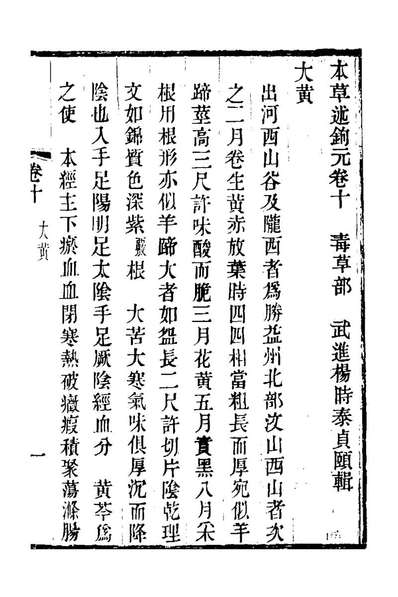 本草述鉤元卷十　毒草部　武進楊時泰貞頤輯
大黃
出河西山谷及隴西者爲勝益州北部汶山西山者次
之二月卷生黃赤放葉時四四相當粗長而厚宛似羊
蹄莖高三尺許味酸而脆三月花黃五月實黑八月采
根用根形亦似羊蹄大者如盌長二尺許切片陰乾理
文如錦質色深紫　根　大苦大寒氣味俱厚沉而降
陰也入手足陽明足太陰手足厥陰經血分　黃芩爲
之使　本經主下瘀血血閉寒熱破癥瘕積聚蕩滌腸
卷十　大黃　一